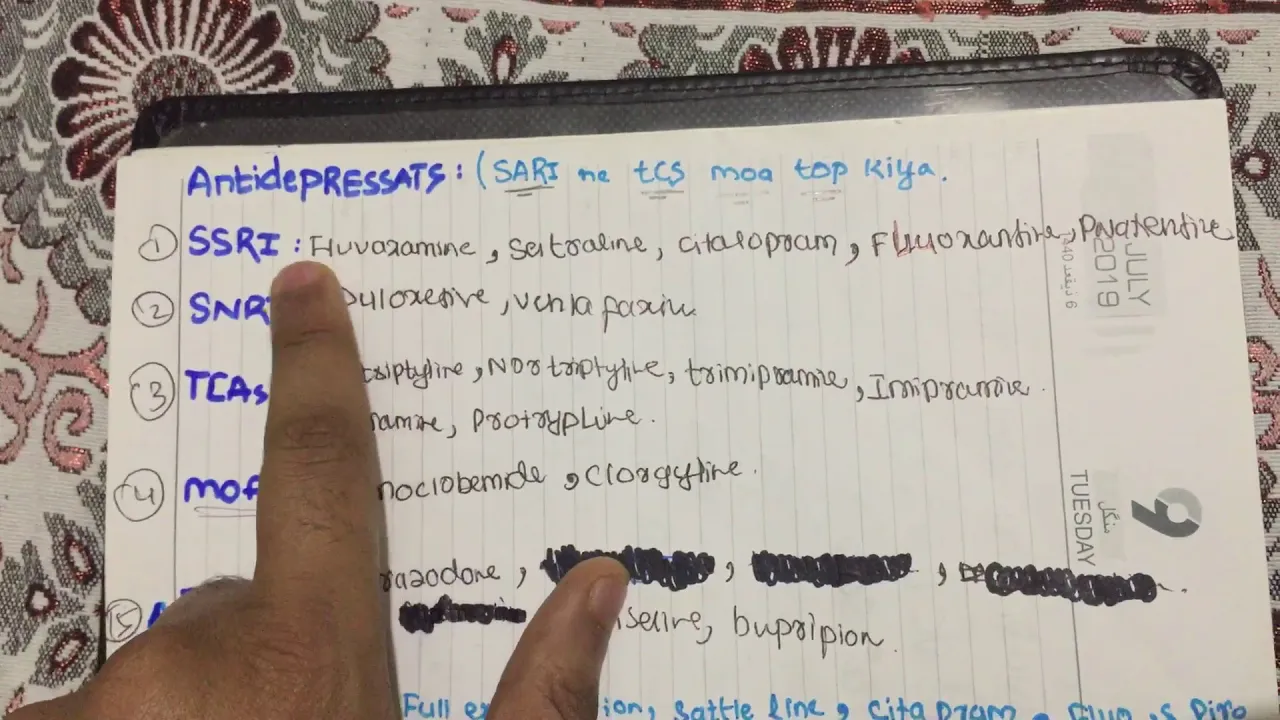 AntidePRESSATS : (SARI ne tCS moa top Kiya.
① SSRI : Fluvoxamine , Seitraline, citalopram, Fluoxantine, Paroxentine
② SNRI Duloxetive , Venlafaxin
③ TCAs triptyline , Nortriptyline, trimipramine , Imipramine .
amine, Protrypline.
④ moclobemide , Clorgyline .
⑤ razodone , , , .
iserine, bupripion .
Full ion, Sattle line , Cita pram ,
JULY
2019
TUESDAY
9
منگل